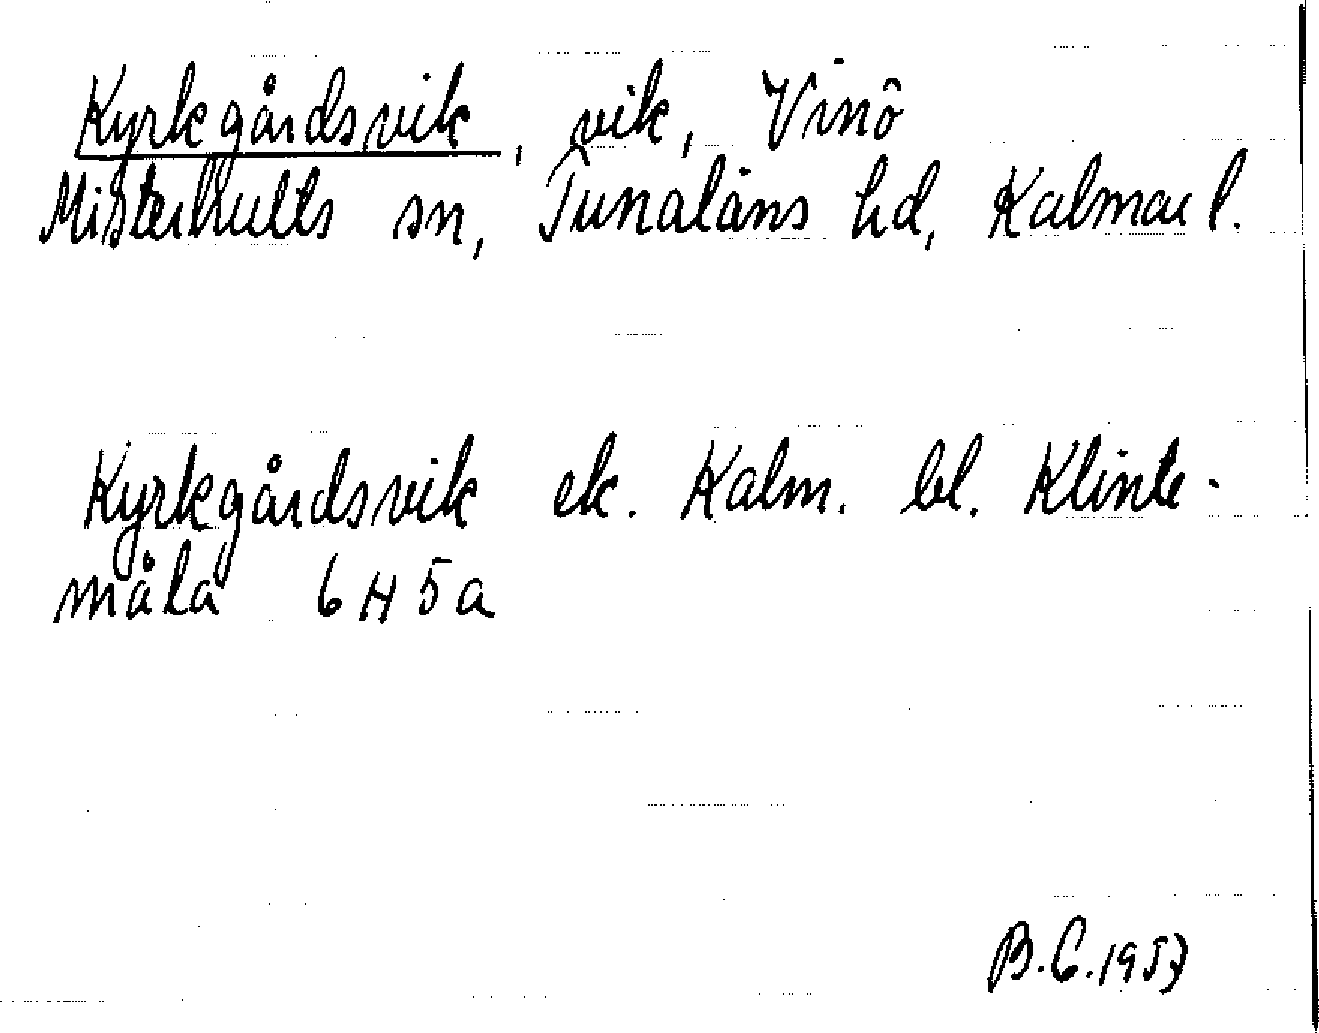 Kyrkgårdsvik, vik, Vinö
Misterhults sn, Tunaläns hd, Kalmar l.
Kyrkgårdsvik ek. Kalm. bl. Klinte-
måla 6H5a
B.C. 1957